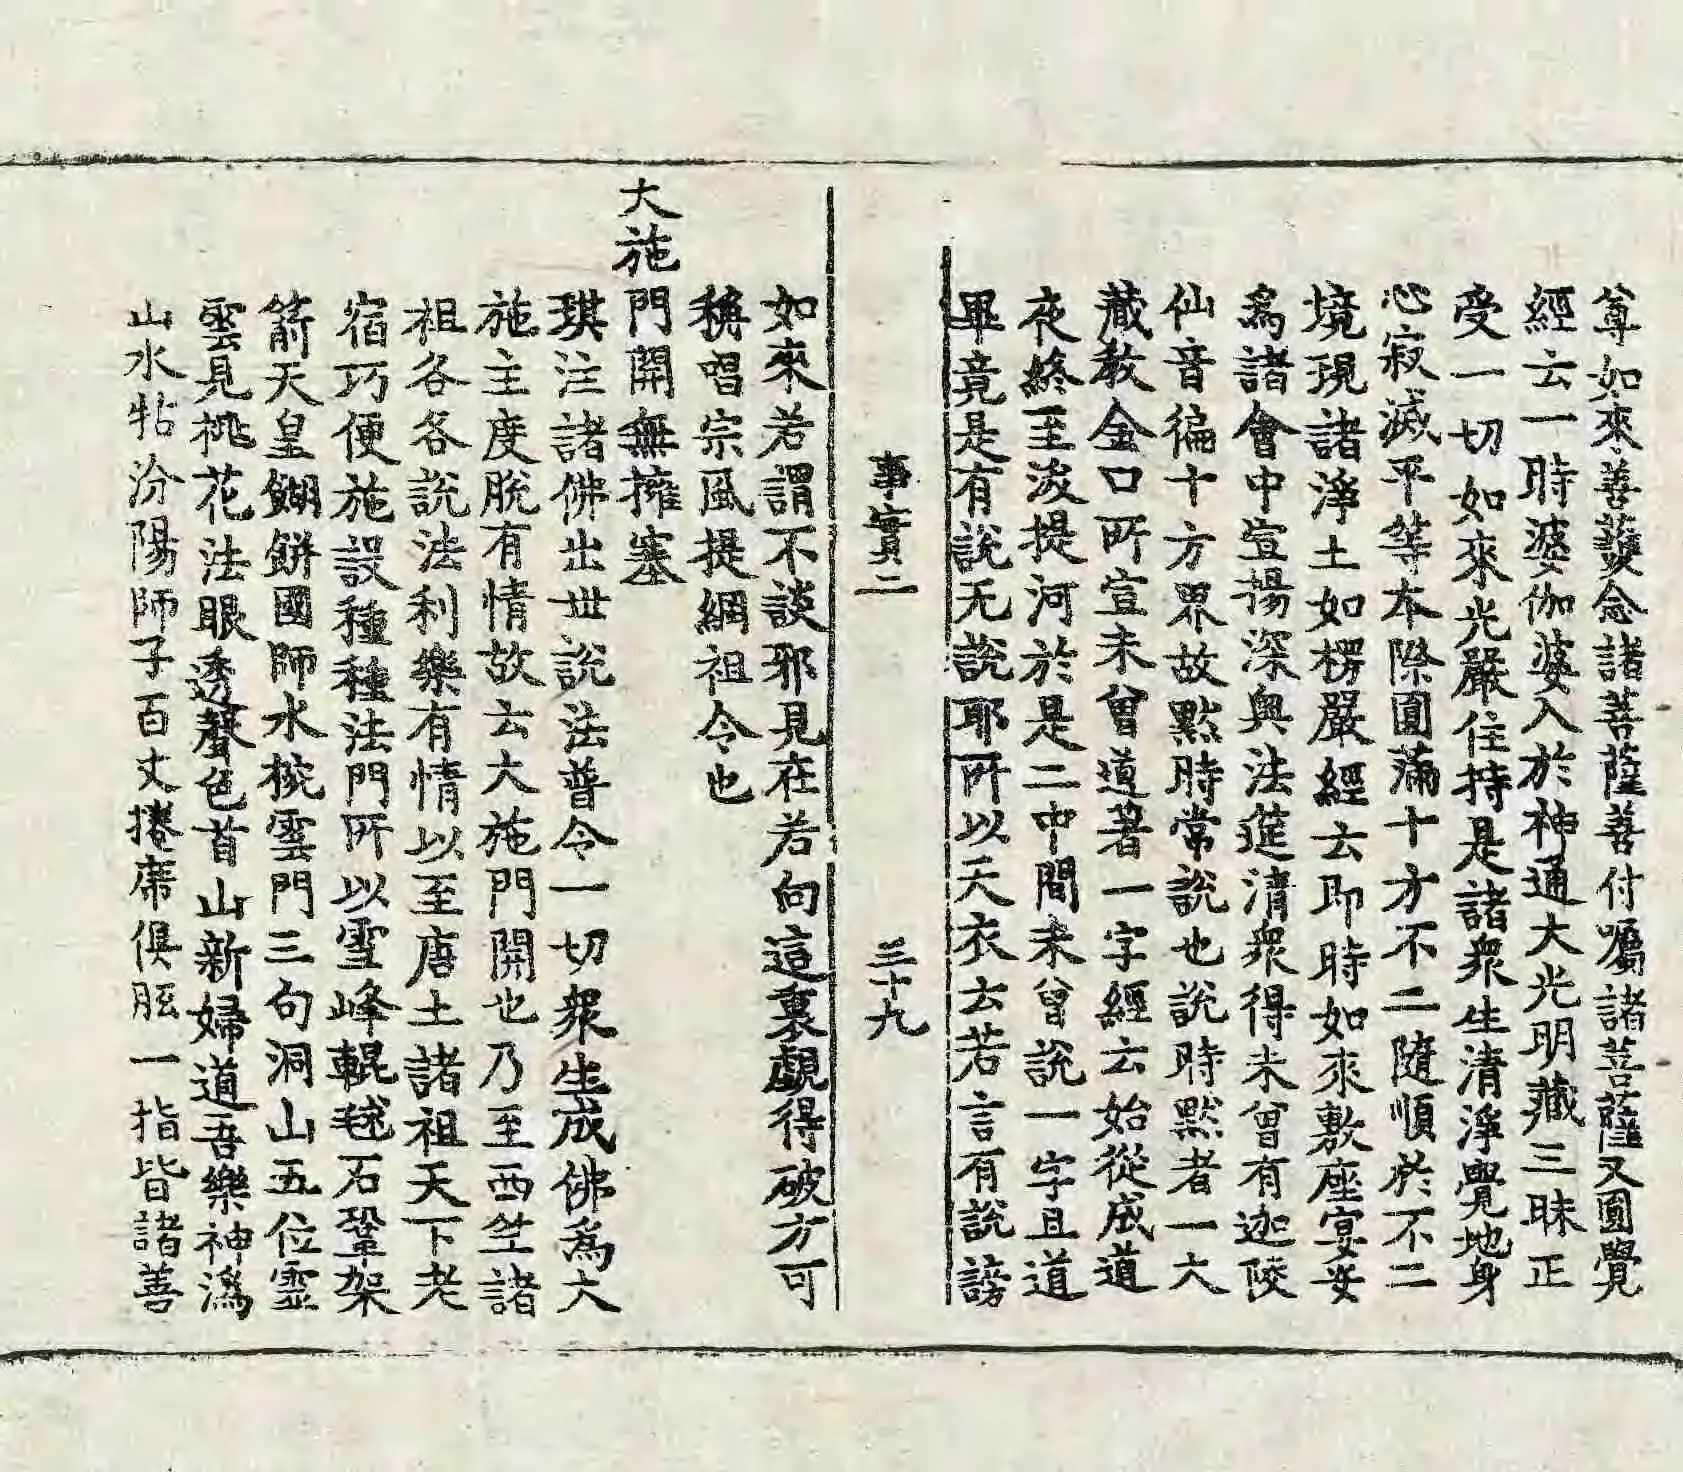 尊如來善護念諸菩薩善付囑諸菩薩又圓覺
經云一時婆伽婆入於神通大光明藏三昧正
受一切如來光嚴住持是諸衆生清淨覺地身
心寂滅平等本際圓滿十方不二隨順於不二
境現諸淨土如楞嚴經云即時如來敷座宴安
爲諸會中宣揚深奧法筵清衆得未曾有迦陵
仙音徧十方界故黙時常說也說時黙者一大
藏敎金口所宣未曾道著一字經云始從成道
夜終至泼提河於是二中間未曾說一字且道
畢竟是有說无說耶所以天衣云若言有說謗
事實二　三十九
如來若謂不談邪見在若向這裏覷得破方可
稱唱宗風提綱祖令也
大施門開無擁塞
琪注諸佛出世說法普令一切衆生成佛爲大
施主度脫有情故云大施門開也乃至西竺諸
祖各各說法利樂有情以至唐土諸祖天下老
宿巧便施設種種法門所以雪峰輥毬石鞏架
箭天皇餬餅國師水椀雲門三句洞山五位靈
雲見桃花法眼透聲色首山新婦道吾樂神潙
山水牯汾陽師子百丈捲席俱胝一指皆諸善